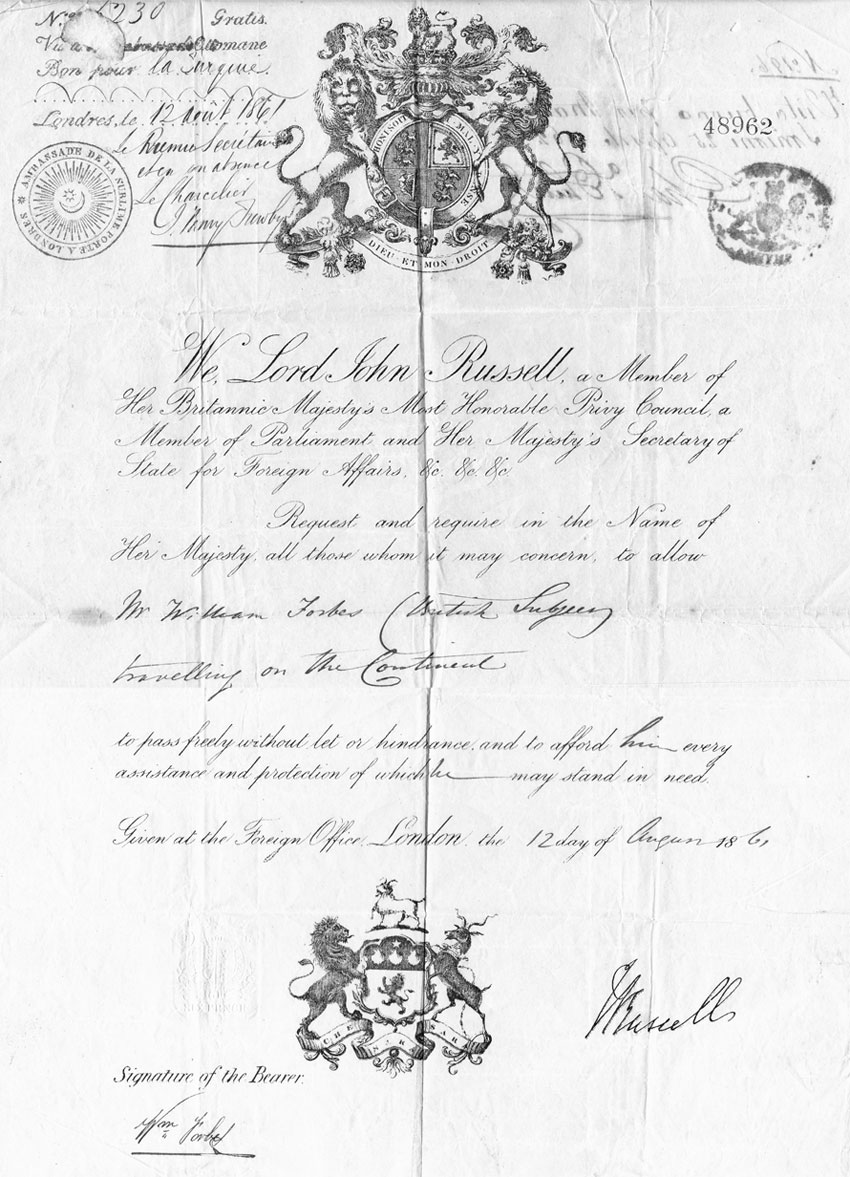 No 5230 Gratis.
Vu à l'Ambassade Ottomane
Bon pour la Turquie.
Londres, le 12 août 1861
Le Premier Secrétaire
et en son absence
Le Chancelier
AMBASSADE DE LA SUBLIME PORTE A LONDRES
HONI SOIT QUI MAL Y PENSE
DIEU ET MON DROIT
48962
We, Lord John Russell, a Member of
Her Britannic Majesty's Most Honorable Privy Council, a
Member of Parliament and Her Majesty's Secretary of
State for Foreign Affairs, &c. &c. &c.
Request and require in the Name of
Her Majesty, all those whom it may concern, to allow
Mr William Forbes (British Subject)
travelling on the Continent
to pass freely without let or hindrance, and to afford him every
assistance and protection of which he may stand in need.
Given at the Foreign Office, London, the 12 day of August 1861
CHE SARA SARA
JRussell
Signature of the Bearer.
Wm Forbes